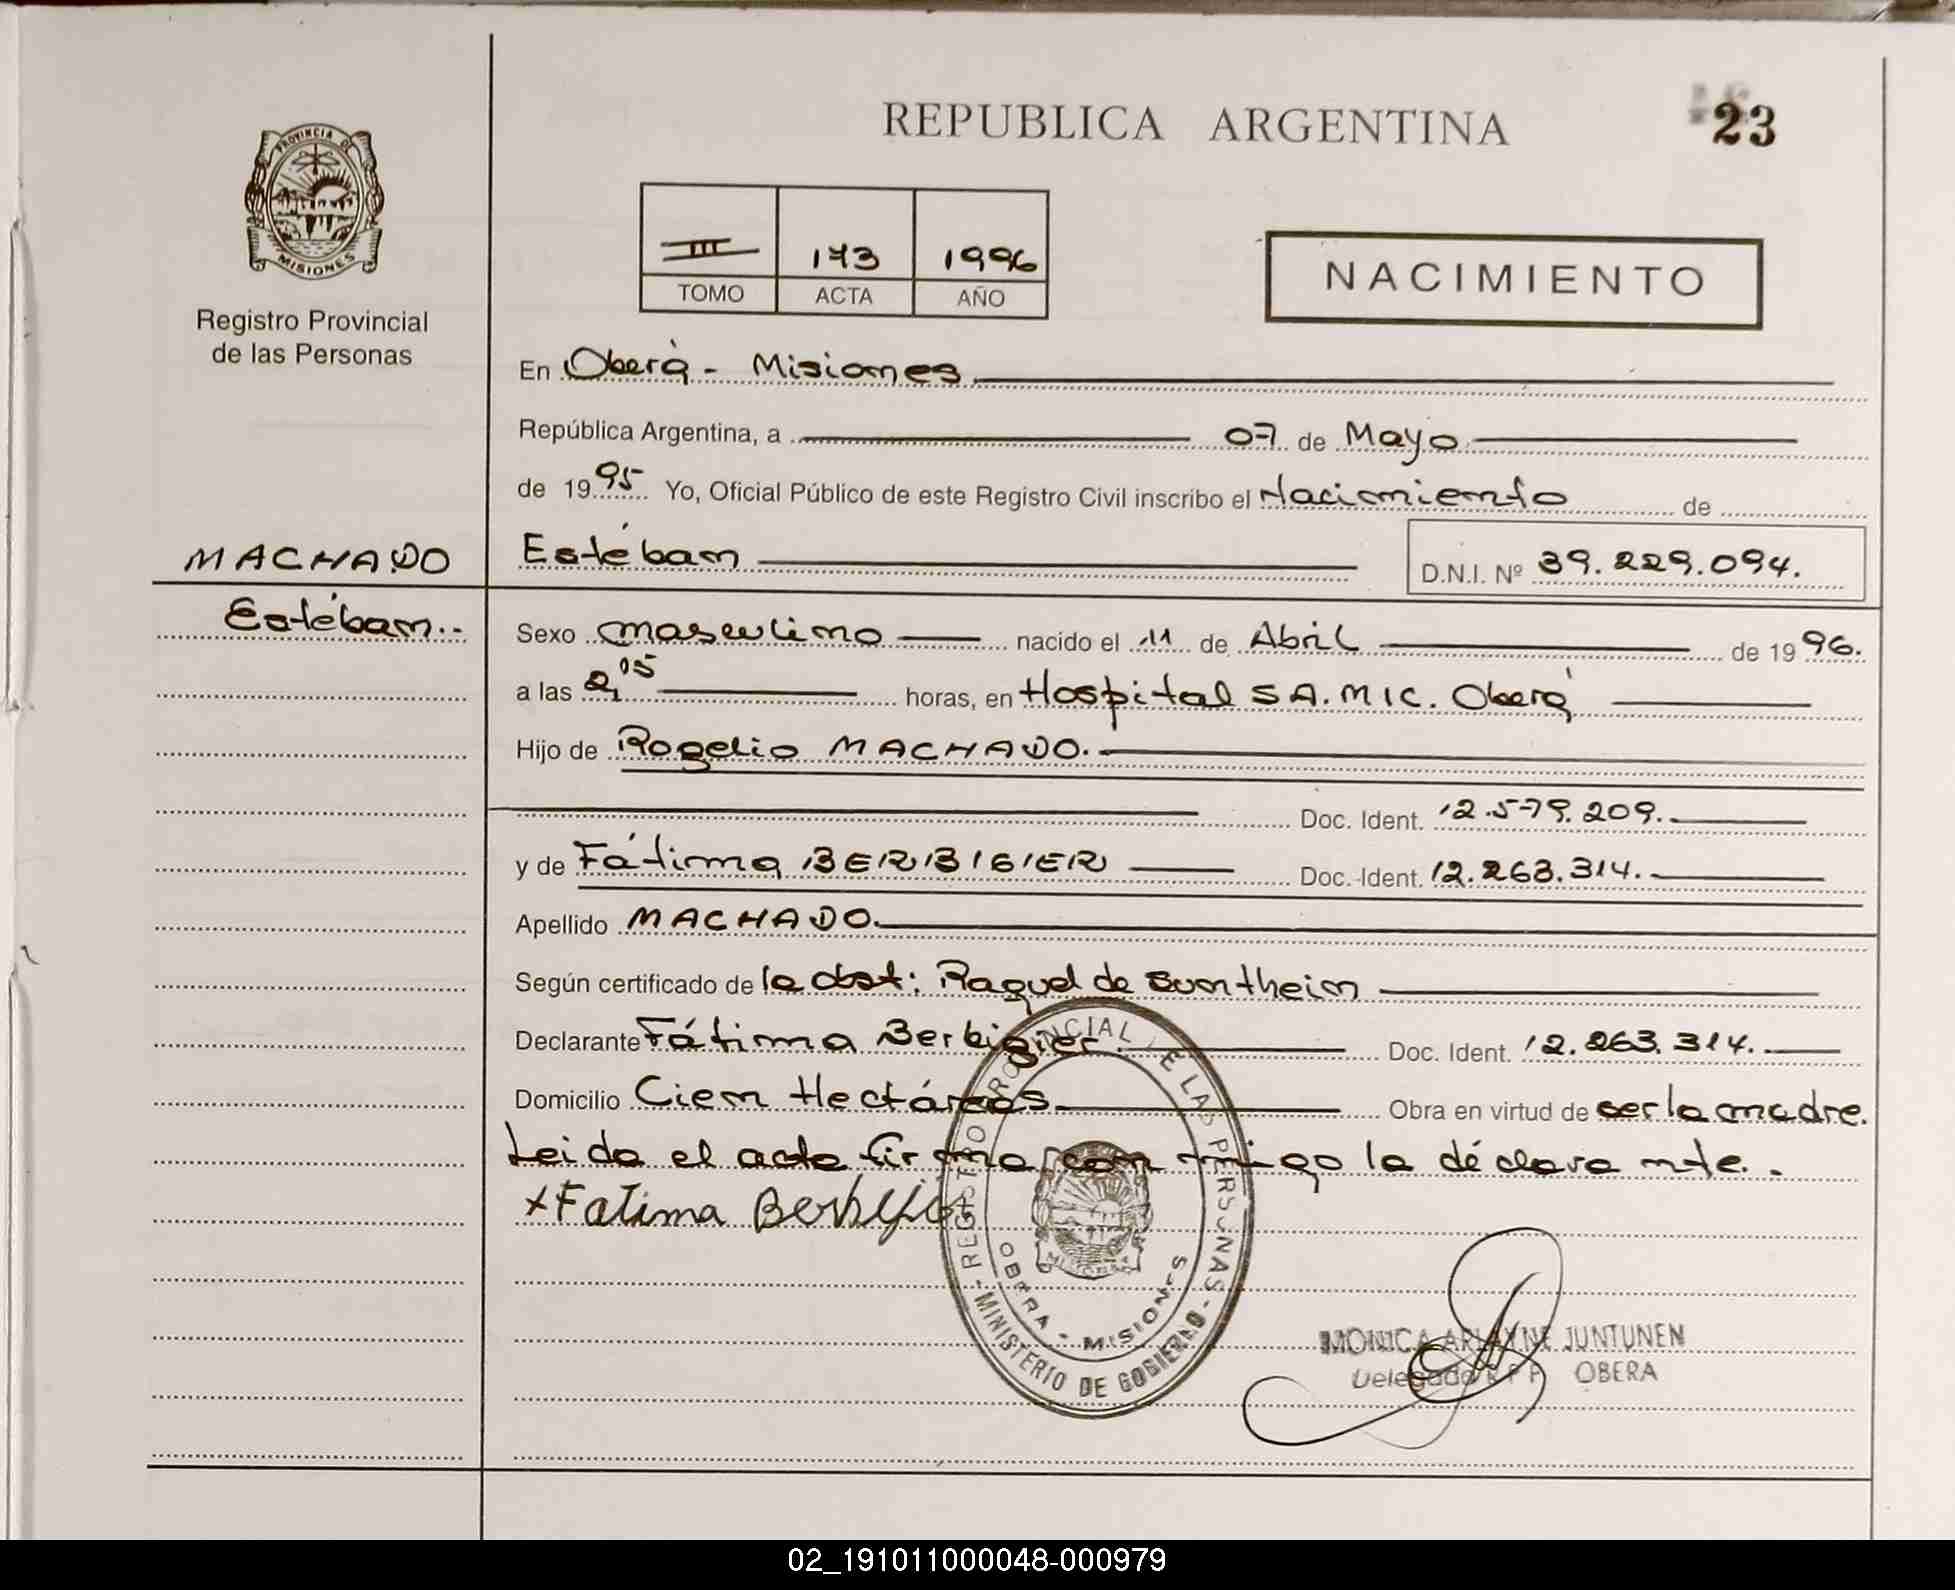 REPUBLICA ARGENTINA
23
PROVINCIA DE
MISIONES
Registro Provincial
de las Personas
III 173 1996
TOMO ACTA AÑO
NACIMIENTO
En Oberá - Misiones
República Argentina, a 07 de Mayo
de 1995 Yo, Oficial Público de este Registro Civil inscribo el Nacimiento de
MACHADO
Estéban
D.N.I. Nº 39.229.094.
Estéban..
Sexo masculino nacido el 11 de Abril de 1996.
a las 2,05 horas, en Hospital SA.MIC. Oberá
Hijo de Rogelio MACHADO.
Doc. Ident. 12.579.209.
y de Fátima BERBIGIER Doc. Ident. 12.263.314.
Apellido MACHADO.
Según certificado de la obst: Raquel de Suntheim
Declarante Fátima Berbigier. Doc. Ident. 12.263.314.
Domicilio Cien Hectáreas. Obra en virtud de ser la madre.
Leida el acta firma con migo la déclara nte.
x Fatima Berbigier
REGISTRO PROVINCIAL DE LAS PERSONAS
OBERA - MISIONES
MINISTERIO DE GOBIERNO
MISIONES
MONICA ARLAYNE JUNTUNEN
Delegada R P P OBERA
02_191011000048-000979